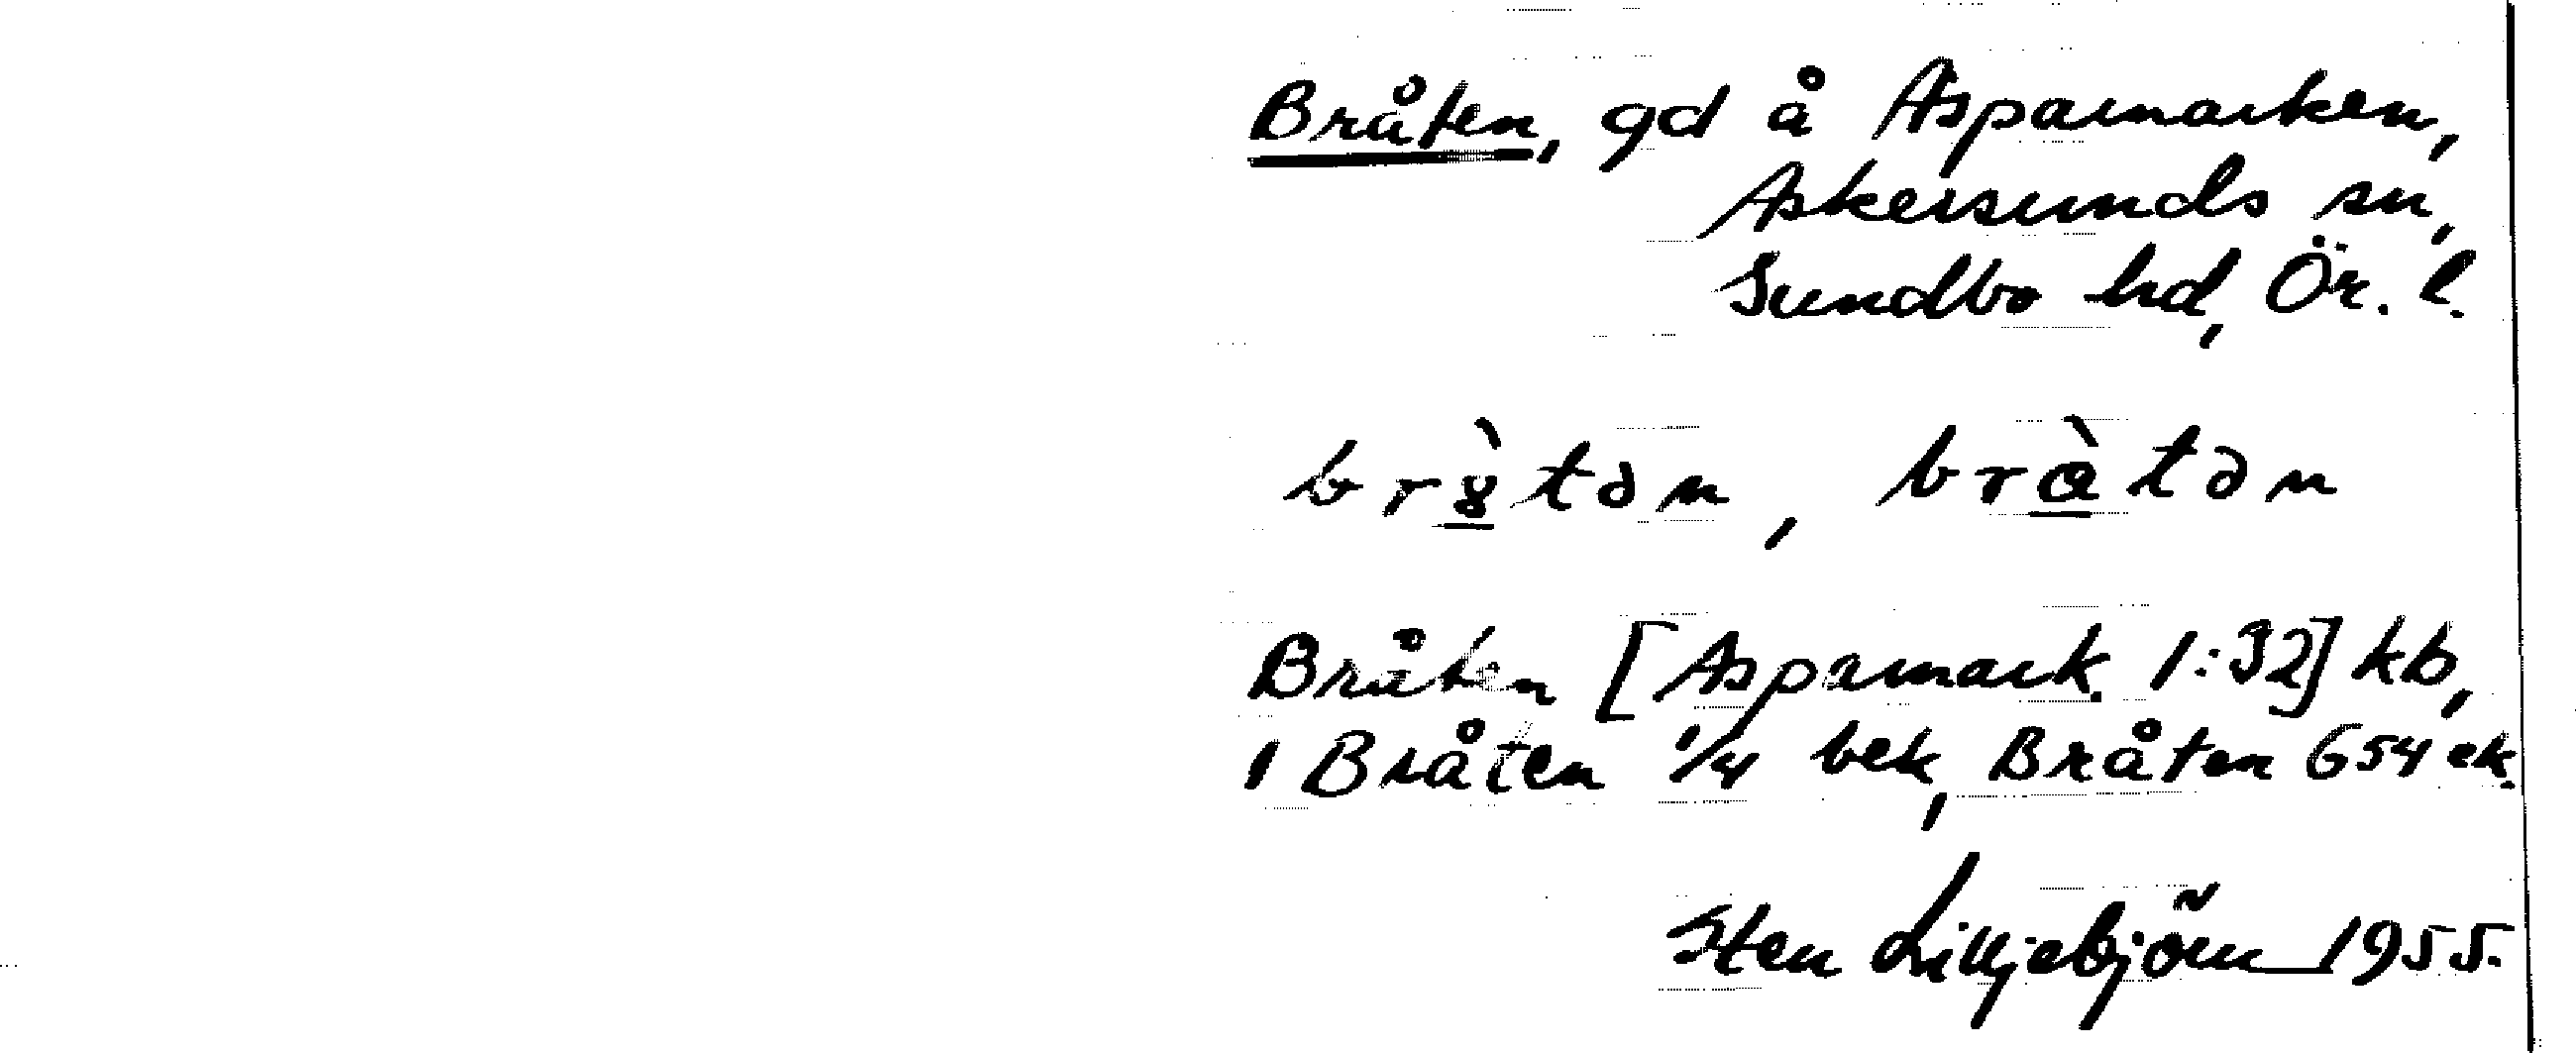 Bråten, gd å Aspamarken,
Askersunds sn,
Sundbo hd, Ör. l.
br&#x300;ɤ̲tən, brɑ̲̀tən
Bråten [Aspamark. 1:32] kb,
1 Bråten 1/4 bek, Bråten 654 ek.
Sten Lilljebjörn 1955.